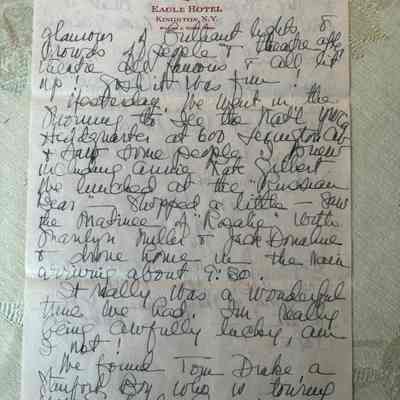 EAGLE HOTEL
KINGSTON, N.Y.
glamour of brilliant lights &
crowds of people & theatre after
theatre all famous & all lit
up! Gosh it was fun!
Yesterday, we went in the
morning to see the Natl YWCA
Headquarter at 600 Lexington Ave
& saw some people I knew
including Annie Kate Gilbert
We lunched at the "Russian
Bear" – Shopped a little – Saw
the Matinee of "Rosalie" with
Marilyn Miller & Jack Donahue
& drove home in the rain
arriving about 9:30.
It really was a wonderful
time we had. I'm really
being awfully lucky, am
I not!
We found Tom Drake, a
Stanford Boy who is touring